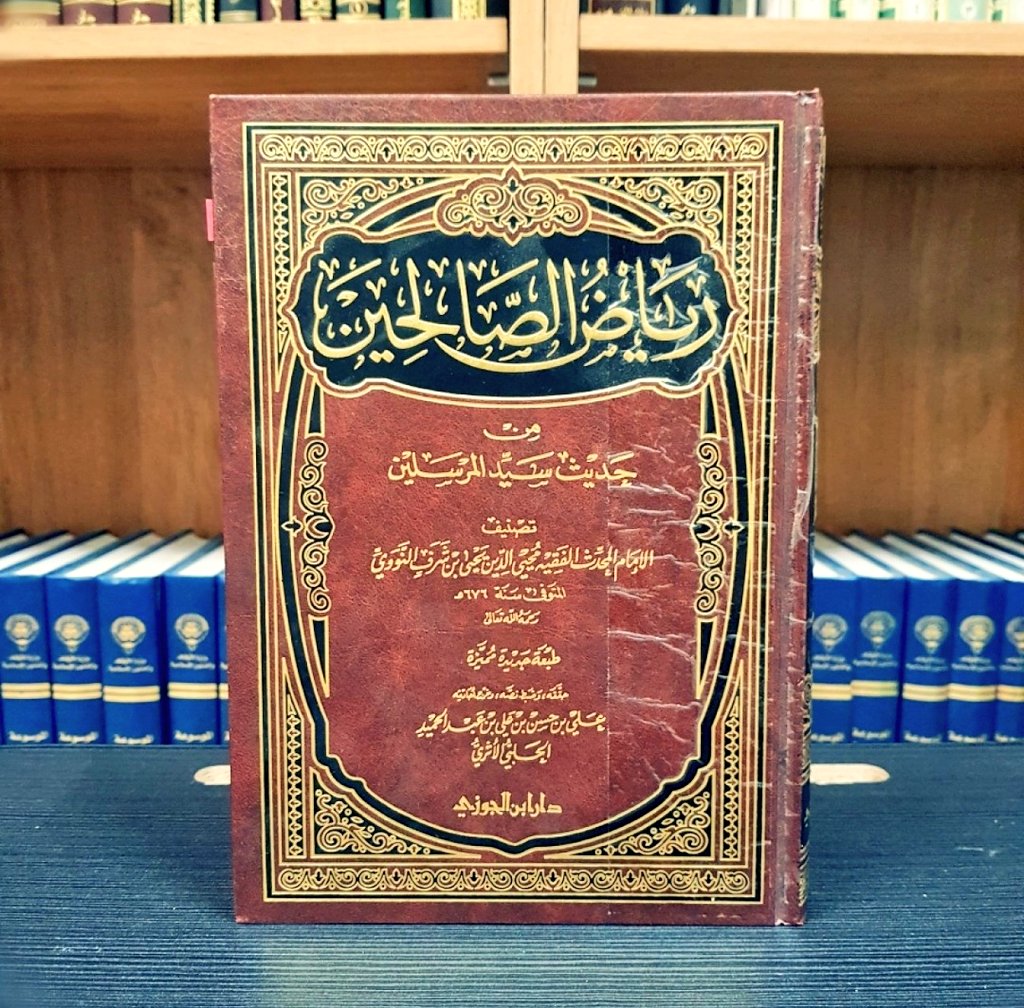 رِيَاضُ الصَّالِحِينَ
مِنْ
حَدِيْث سَيِّد المُرسَلِين
تصنيف
الإمام المحدّث الفقيه مُحيي الدّين يحيى بن شرف النَّوَوِيّ
المتوفى سنة ٦٧٦هـ
رحمهُ الله تعالى
طبعَة جَديدة مُميَّزة
حققه، وضبط نصه، وخرج أحاديثه
عَلي بن حسن بن علي بن عَبد الحميْد
الحَلبيُّ الأثريُّ
دار ابن الجوزي
الموسوعة
الموسوعة
الموسوعة